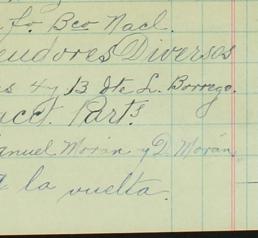 fo. Bco Nacl.
eudores Diversos
s 4 y 13 dte L. Borrego.
cct. Parts
anuel Morán y D. Morán
a la vuelta.